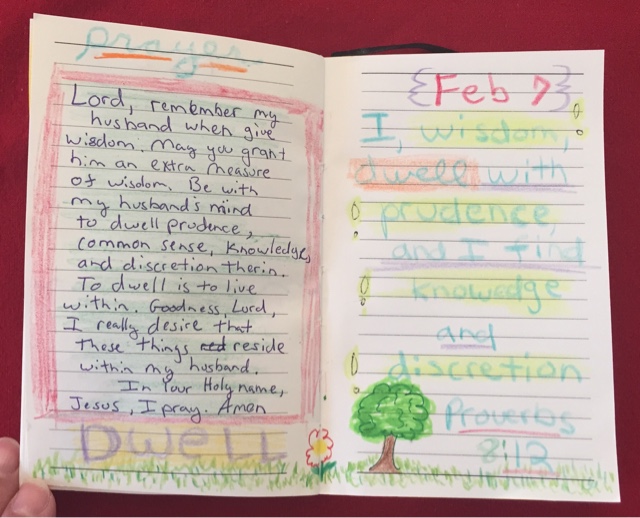 prayer
Lord, remember my
husband when give
wisdom. May you grant
him an extra measure
of wisdom. Be with
my husband's mind
to dwell prudence,
common sense, knowledge,
and discretion therin.
To dwell is to live
within. Goodness, Lord,
I really desire that
these things reside
within my husband.
In Your Holy name,
Jesus, I pray. Amen
Dwell
{Feb 7}
I, wisdom,
dwell with
prudence,
and I find
knowedge
and
discretion
Proverbs
8:12